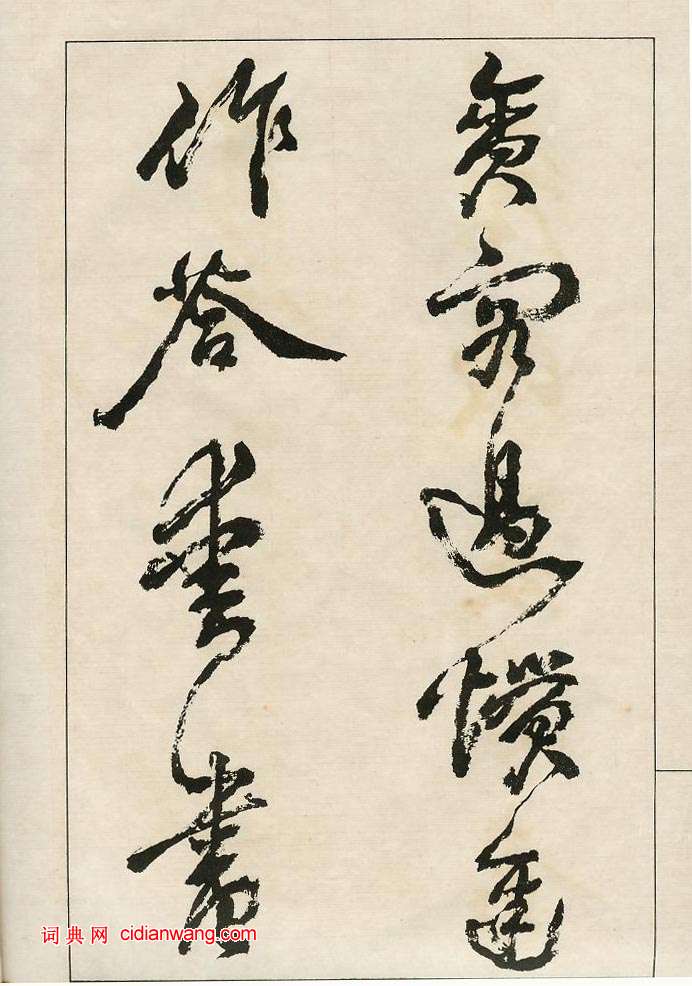 客過慣
作答愛書
词典网 cidianwang.com